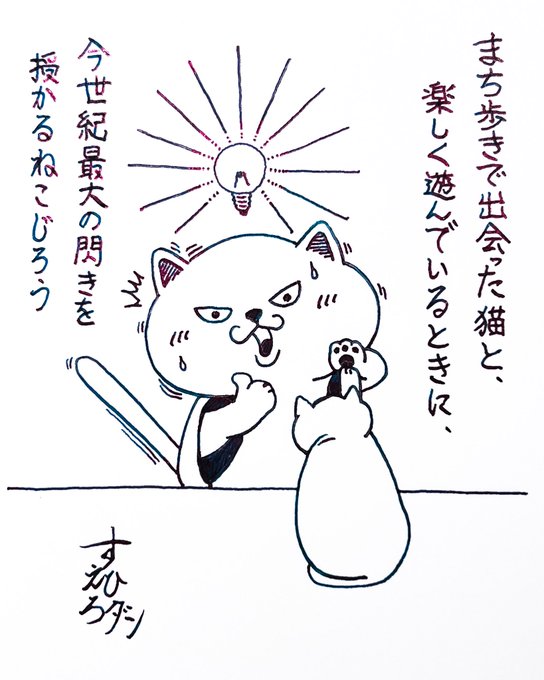 まち歩きで出会った猫と、
楽しく遊んでいるときに、
今世紀最大の閃きを
授かるねこじろう
すえひろダシ